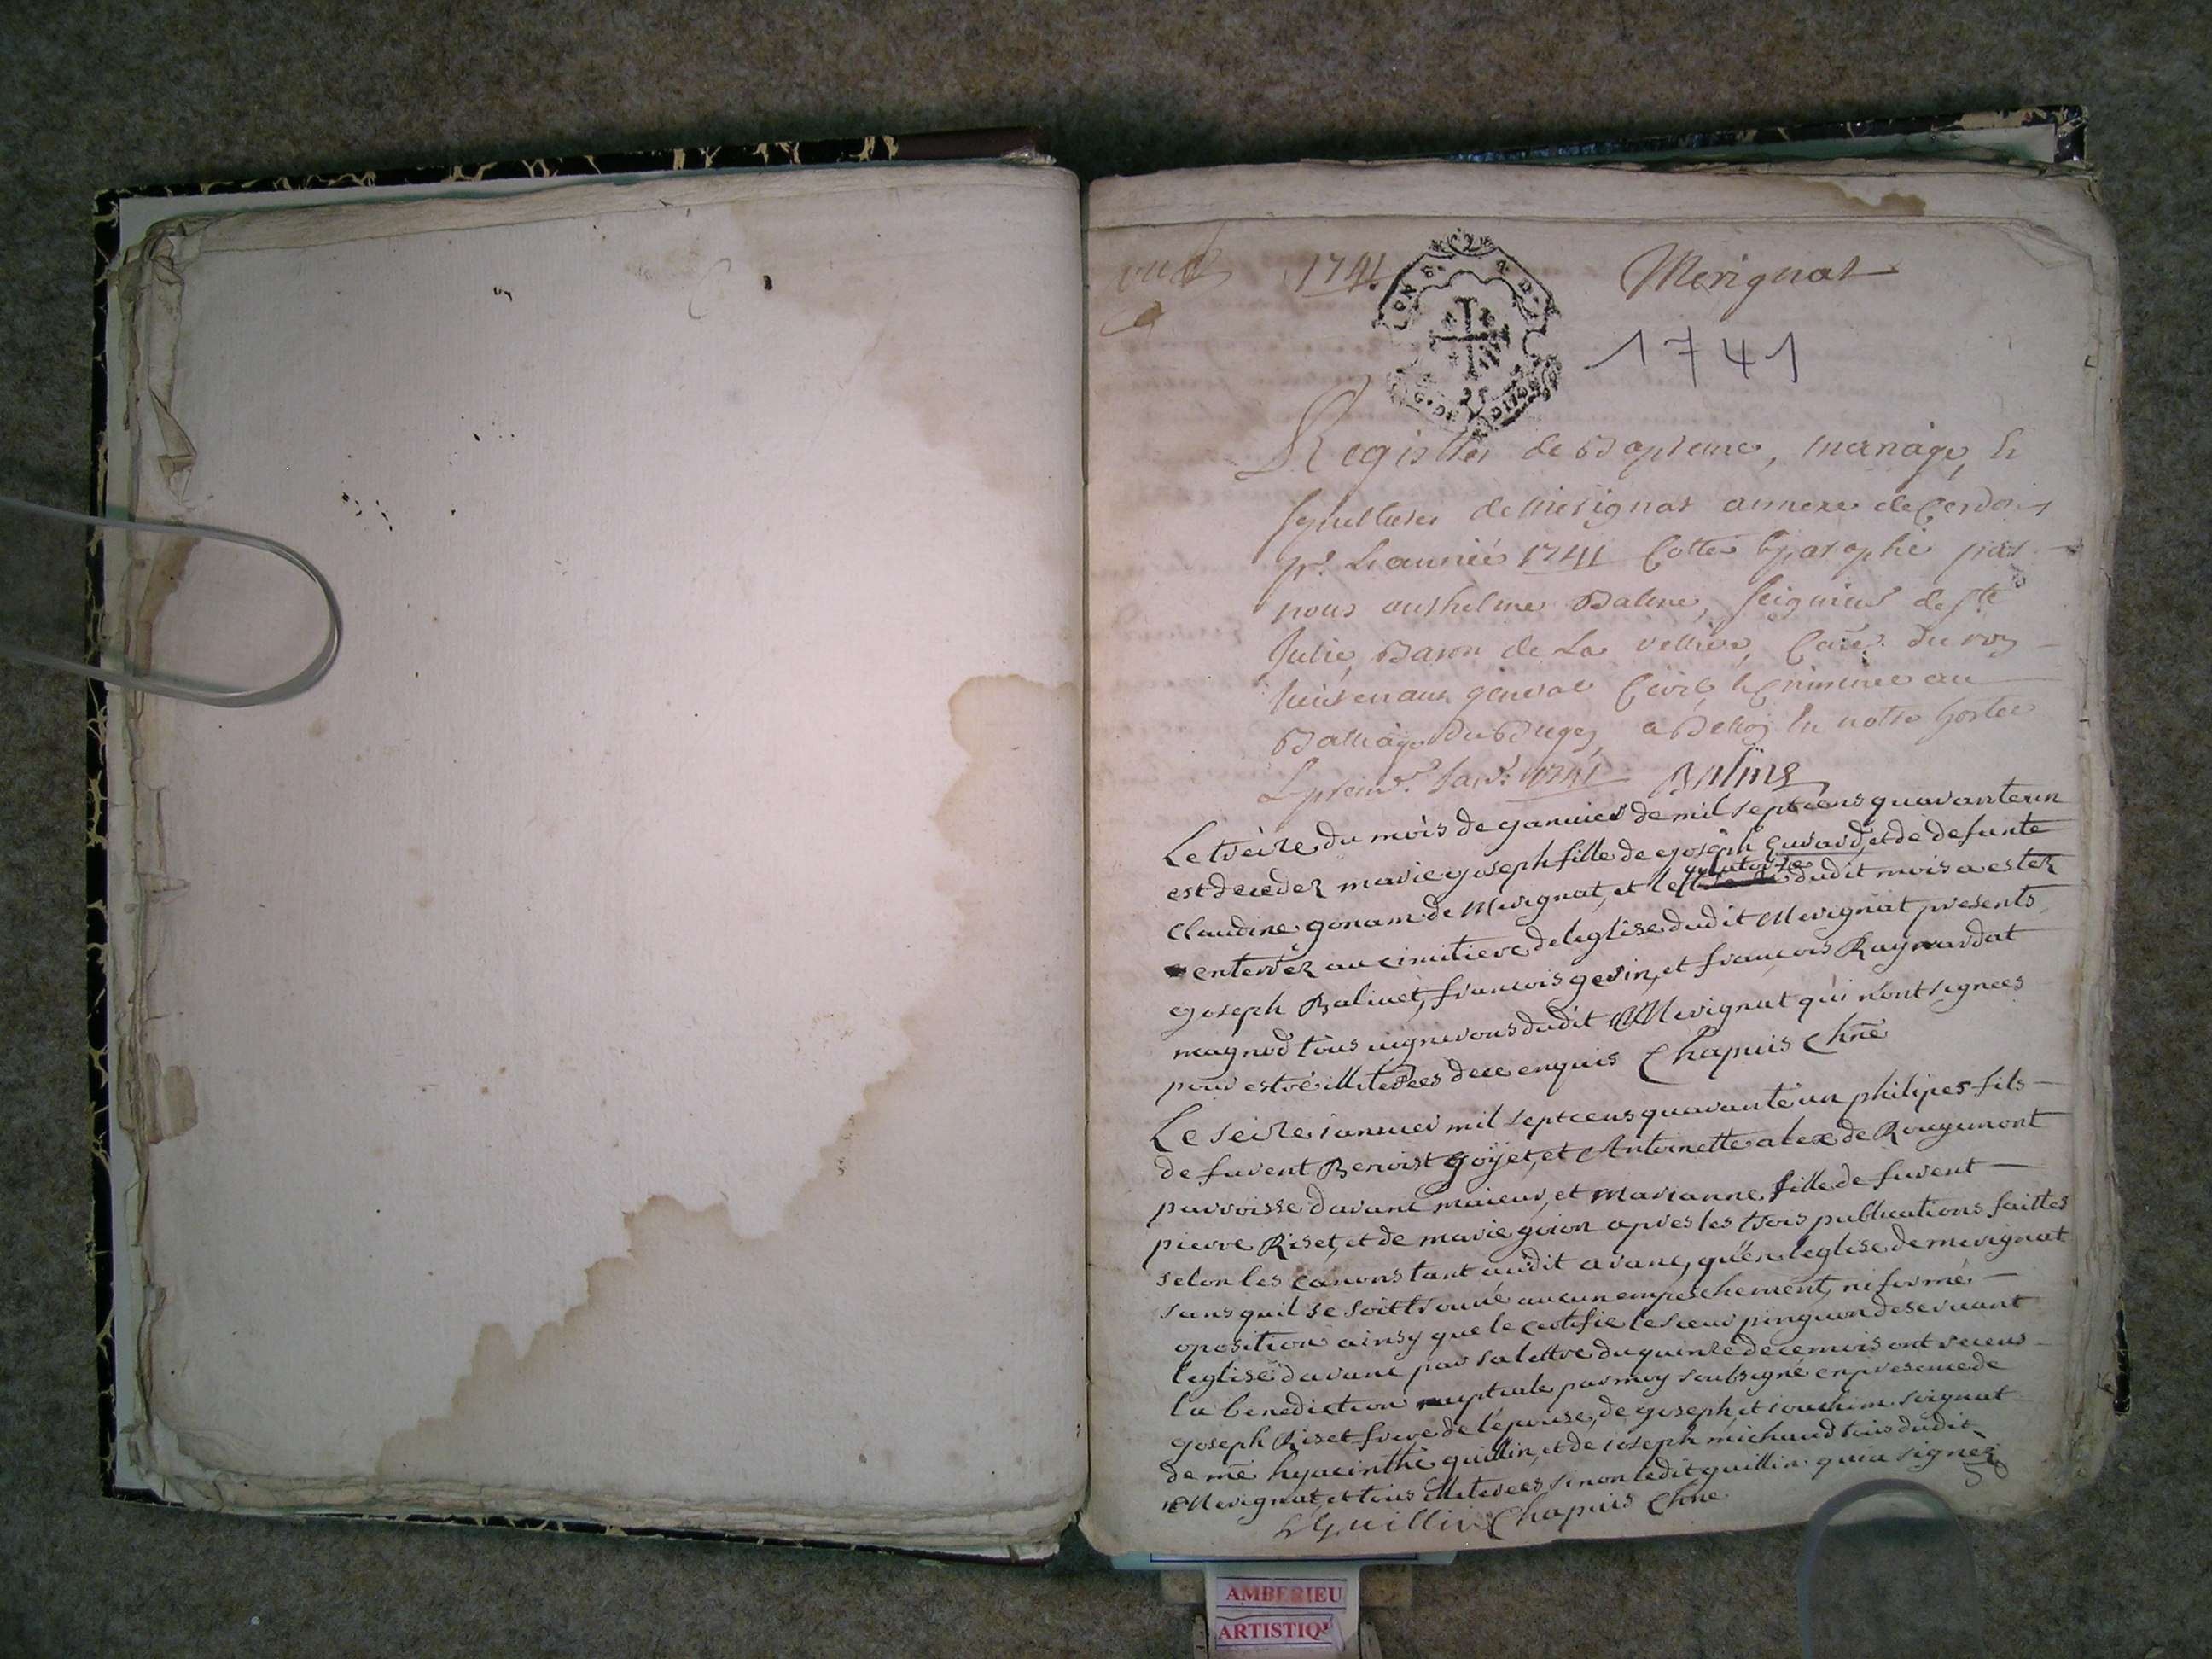 1741 Merignat
1741
Registre de Bapteme, mariage, &
sepultures de Merignat annexe de Cerdon
pr. L'année 1741 Cotté & paraphé par
nous anthelme Balme, seigneur de ste
Julie, Baron de La velliere, Coner. du roy
lieutenant general Civil & Criminel au
Balliage du Bugey, a Belley en notre hostel
Le premr. janvr. 1741 Balme
Le treize du mois deganvier de mil sept cens quarante un
est decedez marie goseph fille de goseph guirard, et de defunte
Claudine gonam de Merignat, et le quatorze dudit mois a estez
enterrez au cimitiere de leglise dudit Merignat presents
goseph Balivet, francois gevin, et francois Raymardat
magnod tous vignerons dudit Merignat qui n'ont signees
pour estre illiterees de ce enquis Chapuis Chne
Le seize ianvier mil sept cens quarante un philipes fils
de furent Benoist goyet, et Antoinette alex de Rougimont
parroisse d'aranc maieur, et marianne fille de furent
pierre Riset, et de marie goion apres les trois publications faittes
selon les canons tant audit aranc, qu'en leglise de merignat
sans quil se soit trouué aucun empeschement, ni formé
oposition ainsy que le certifie le sieur pinguon deseruant
leglise d'aranc par sa lettre du quinze de ce mois ont receus
la benediction nuptiale par moy soubsigné en presence de
goseph Riset frere de l'epouse, de goseph, et iouachim soignat
de me hyacinthe guillin, et de ioseph michaud tous dudit
Merignat, et tous illiterees sinon ledit guillin qui a signez
Guillin Chapuis Chne
AMBERIEU
ARTISTIQ